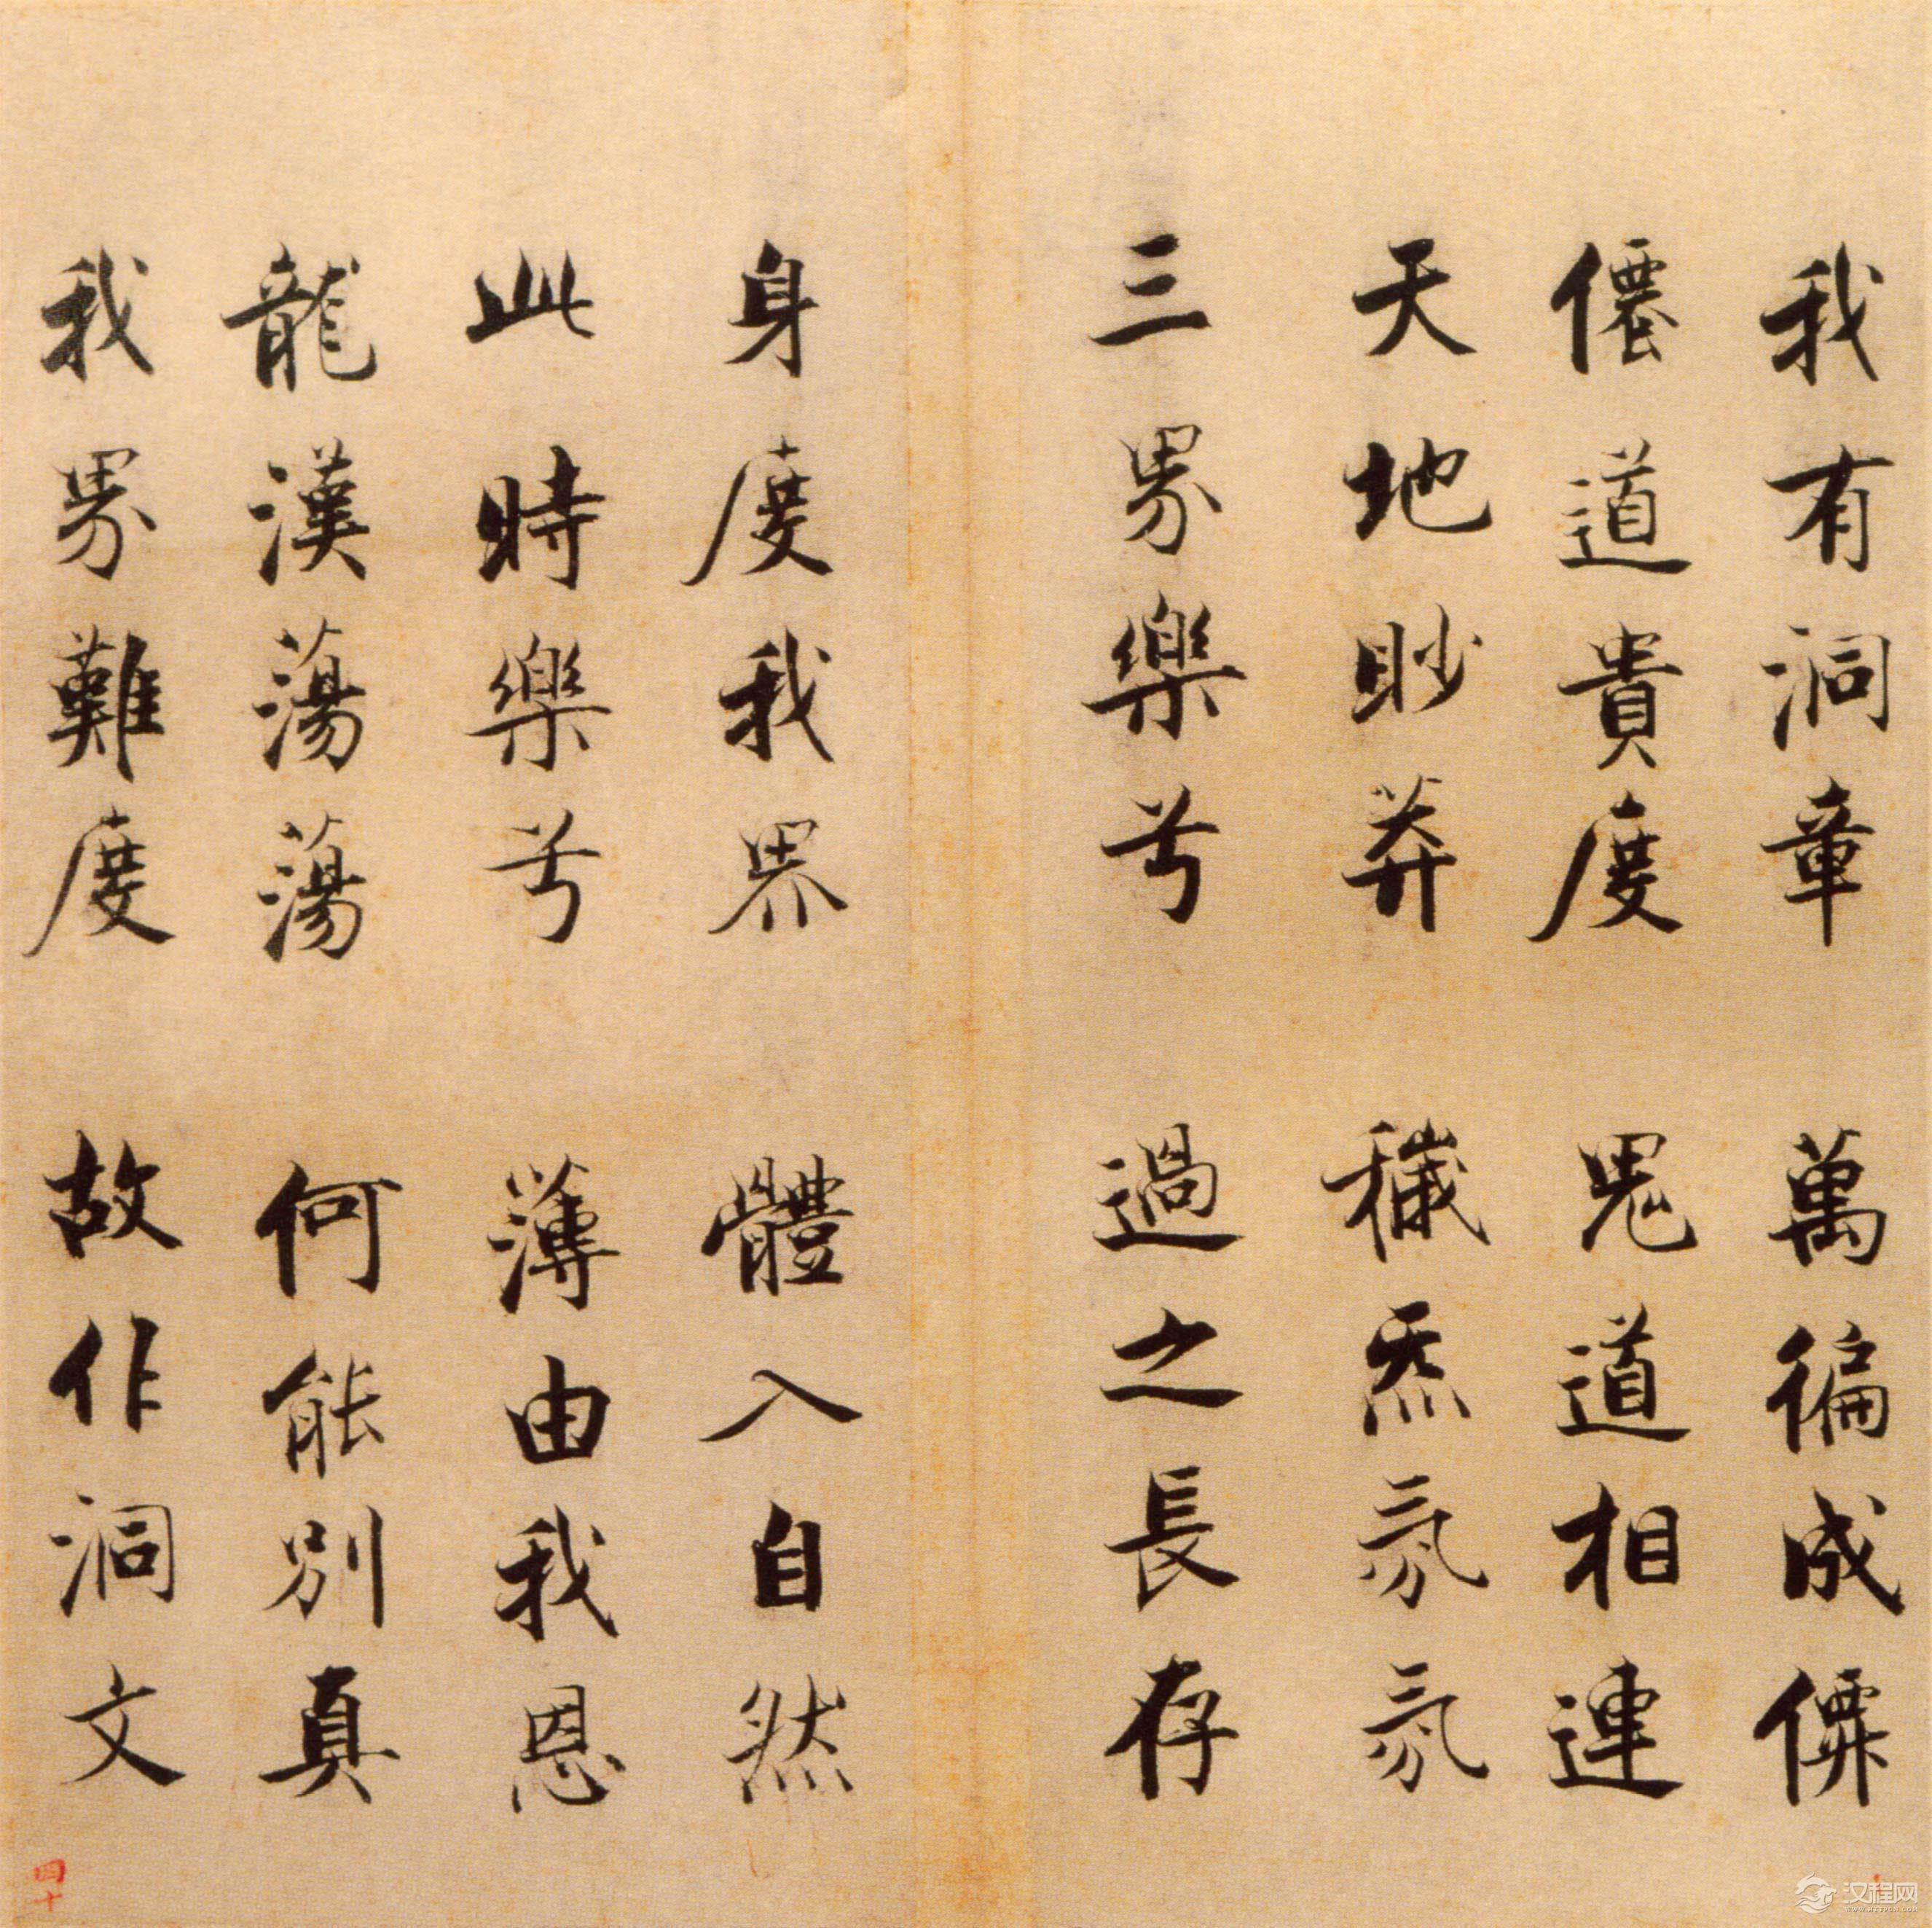 我有洞章 萬徧成僊
僊道貴度 鬼道相連
天地眇莽 穢炁氛氛
三界樂兮 過之長存
身度我界 體入自然
此時樂兮 薄由我恩
龍漢蕩蕩 何能別真
我界難度 故作洞文
四十
汉程网
www.httpcn.com